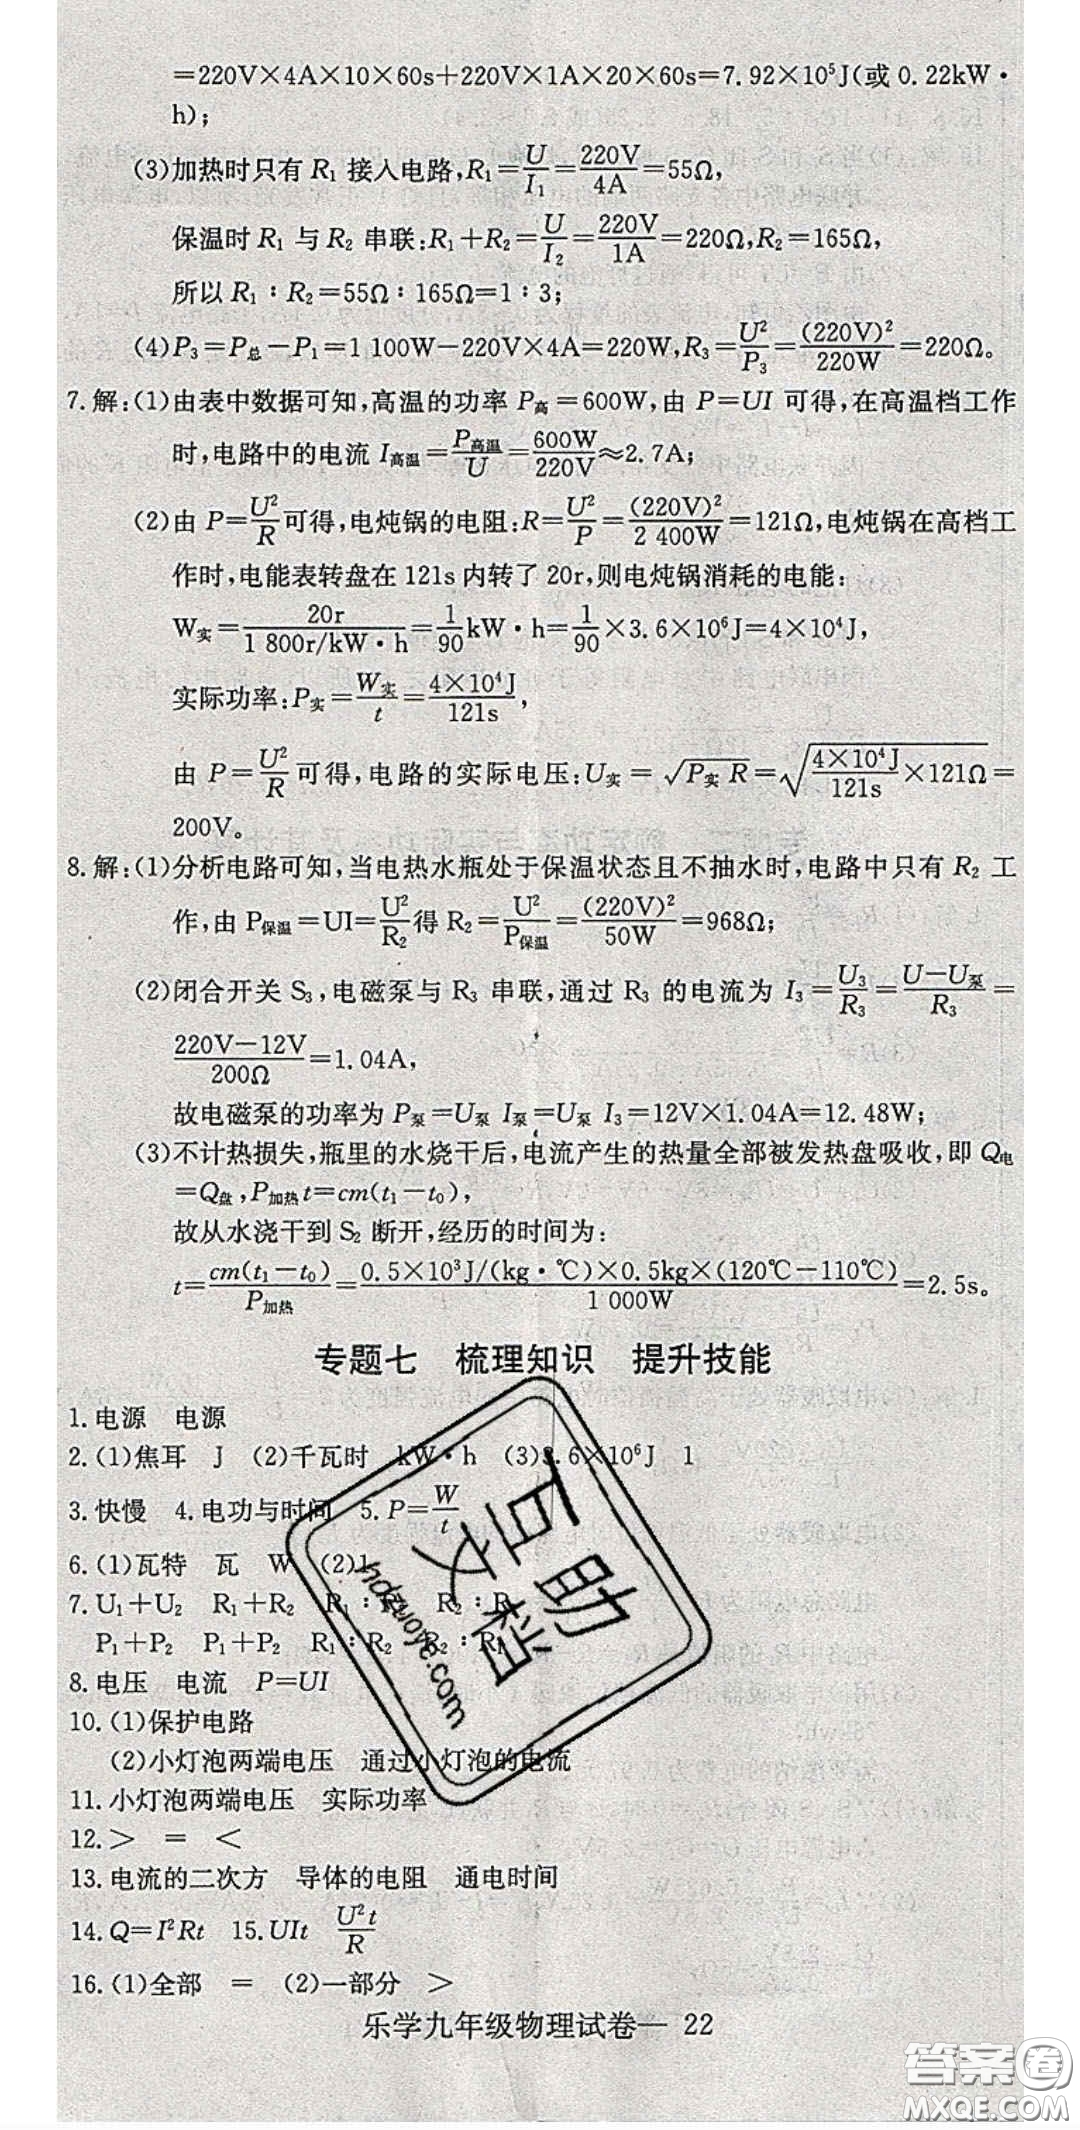 =220V×4A×10×60s+220V×1A×20×60s=7.92×10⁵J(或 0.22kW·
h);
(3)加热时只有 R₁ 接入电路,R₁=U/I₁=220V/4A=55Ω,
保温时 R₁ 与 R₂ 串联:R₁+R₂=U/I₂=220V/1A=220Ω,R₂=165Ω,
所以 R₁∶R₂=55Ω∶165Ω=1∶3;
(4)P₃=P总-P₁=1 100W-220V×4A=220W,R₃=U²/P₃=(220V)²/220W=220Ω。
7.解:(1)由表中数据可知,高温的功率 P高=600W,由 P=UI 可得,在高温档工作
时,电路中的电流 I高温=P高温/U=600W/220V≈2.7A;
(2)由 P=U²/R可得,电炖锅的电阻:R=U²/P=(220V)²/2 400W=121Ω,电炖锅在高档工
作时,电能表转盘在 121s 内转了 20r,则电炖锅消耗的电能:
W实=20r/1 800r/kW·h=1/90kW·h=1/90×3.6×10⁶J=4×10⁴J,
实际功率:P实=W实/t=4×10⁴J/121s,
由 P=U²/R可得,电路的实际电压:U实=√(P实 R)=√(4×10⁴J/121s×121Ω)=
200V。
8.解:(1)分析电路可知,当电热水瓶处于保温状态且不抽水时,电路中只有 R₂ 工
作,由 P保温=UI=U²/R₂得 R₂=U²/P保温=(220V)²/50W=968Ω;
(2)闭合开关 S₃,电磁泵与 R₃ 串联,通过 R₃ 的电流为 I₃=U₃/R₃=U-U泵/R₃=
220V-12V/200Ω=1.04A,
故电磁泵的功率为 P泵=U泵 I泵=U泵 I₃=12V×1.04A=12.48W;
(3)不计热损失,瓶里的水烧干后,电流产生的热量全部被发热盘吸收,即 Q电
=Q盘,P加热t=cm(t₁-t₀),
故从水浇干到 S₂ 断开,经历的时间为:
t=cm(t₁-t₀)/P加热=0.5×10³J/(kg·℃)×0.5kg×(120℃-110℃)/1 000W=2.5s。
专题七 梳理知识 提升技能
1.电源 电源
2.(1)焦耳 J (2)千瓦时 kW·h (3)3.6×10⁶J 1
3.快慢 4.电功与时间 5.P=W/t
6.(1)瓦特 瓦 W (2)1
7.U₁+U₂ R₁+R₂ R₁∶R₂ R₂∶R₁
P₁+P₂ P₁+P₂ R₁∶R₂ R₂∶R₁
8.电压 电流 P=UI
10.(1)保护电路
(2)小灯泡两端电压 通过小灯泡的电流
11.小灯泡两端电压 实际功率
12.> = <
13.电流的二次方 导体的电阻 通电时间
14.Q=I²Rt 15.UIt U²t/R
16.(1)全部 = (2)一部分 >
乐学九年级物理试卷— 22
互助文档
hdzuoye.com
答案圈
MXQE.COM